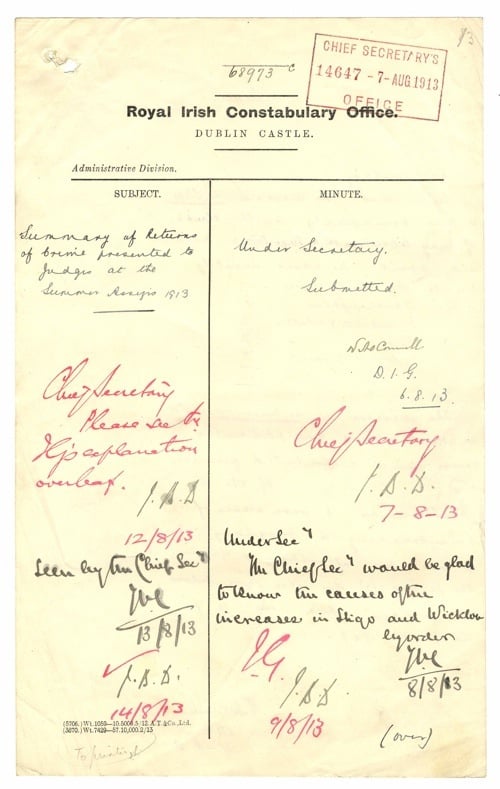 13
68973 C
CHIEF SECRETARY'S
14647 - 7-AUG.1913
OFFICE
Royal Irish Constabulary Office.
DUBLIN CASTLE.
Administrative Division.
SUBJECT.
Summary of Returns
of Crime presented to
Judges at the
Summer Assizes 1913
Chief Secretary
Please see the
IG's explanation
overleaf.
J.B.D
12/8/13
Seen by the Chief Secy
13/8/13
J.B.D.
14/8/13
MINUTE.
Under Secretary.
Submitted.
D.I.G.
6.8.13.
Chief Secretary
J.B.D.
7-8-13
Under Secy
The Chief Secy would be glad
to know the causes of the
increases in Sligo and Wicklow
by order
8/8/13
I.G.
J.B.D
9/8/13
(over)